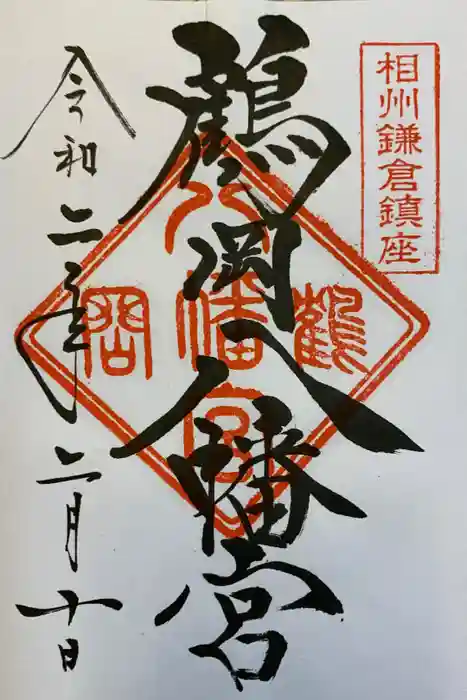 相州鎌倉鎮座
鶴岡八幡宮
鶴岡八幡宮
令和二年二月十日